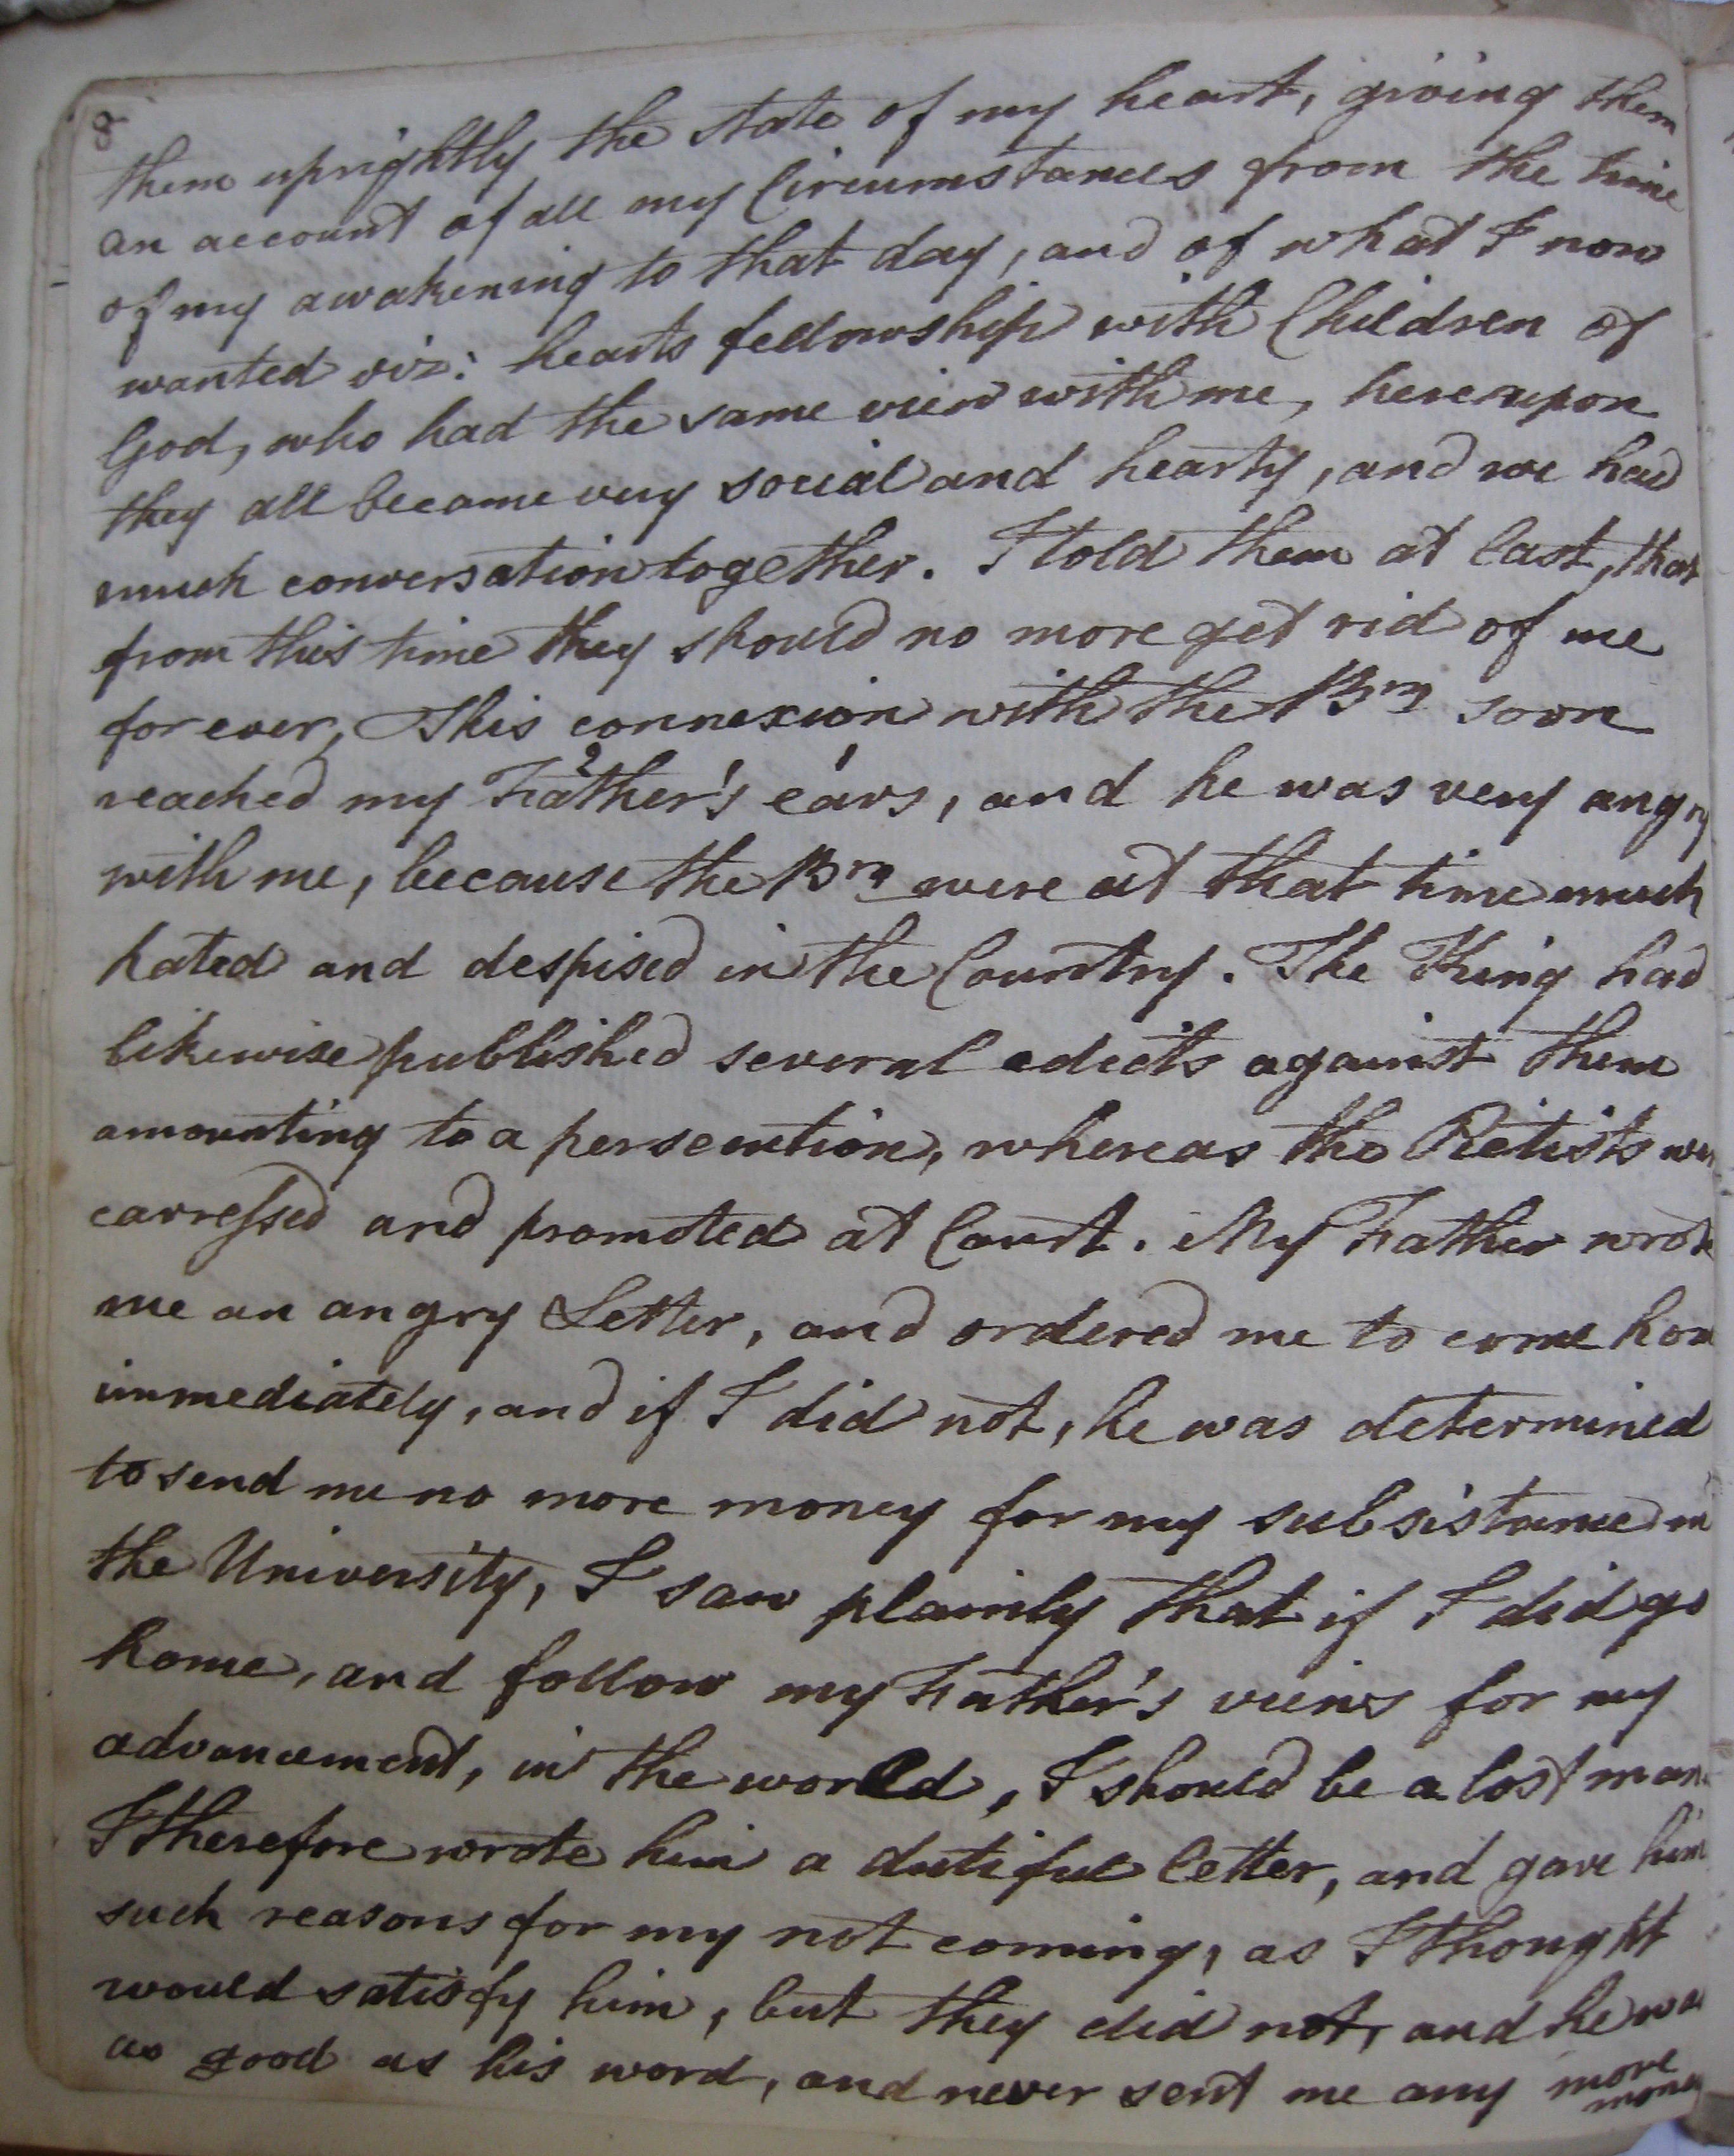 8
them uprightly the state of my heart, giving them
an account of all my Circumstances from the time
of my awakening to that day, and of what I now
wanted viz: hearts fellowship with Children of
God, who had the same view with me, hereupon
they all became very social and hearty, and we had
much conversation together. I told them at last, that
from this time they should no more get rid of me
for ever, This connexion with the Brn soon
reached my Father's ears, and he was very angry
with me, because the Brn were at that time much
hated and despised in the Country. The King had
likewise published several edicts against them
amounting to a persecution, whereas the Pietists wer
carressed and promoted at Court. My Father wrote
me an angry Letter, and ordered me to come hom
immediately, and if I did not, he was determined
to send me no more money for my subsistance in
the University, I saw plainly that if I did go
home, and follow my Father's views for my
advancement, in the world, I should be a lost man.
I therefore wrote him a dutiful letter, and gave him
such reasons for my not coming, as I thought
would satisfy him, but they did not, and he wa
as good as his word, and never sent me any more
money